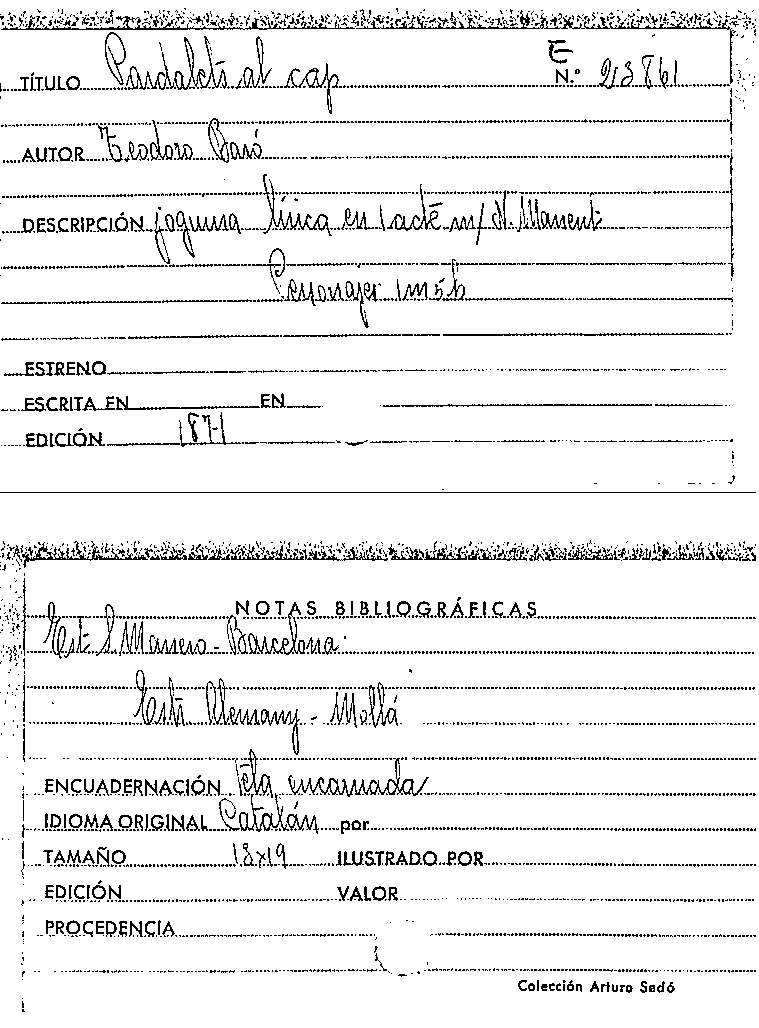 E
TÍTULO Pardalets al cap N.º 23861
AUTOR Teodoro Baró
DESCRIPCIÓN joguina lírica en 1 acte m/ N. Manent
Personajes 1m 5h
ESTRENO
ESCRITA EN EN
EDICIÓN 1871
NOTAS BIBLIOGRÁFICAS
Est S. Manero - Barcelona
Alemany - Mollá
ENCUADERNACIÓN tela encarnada
IDIOMA ORIGINAL Catalán por
TAMAÑO 13x19 ILUSTRADO POR
EDICIÓN VALOR
PROCEDENCIA
Colección Arturo Sedó